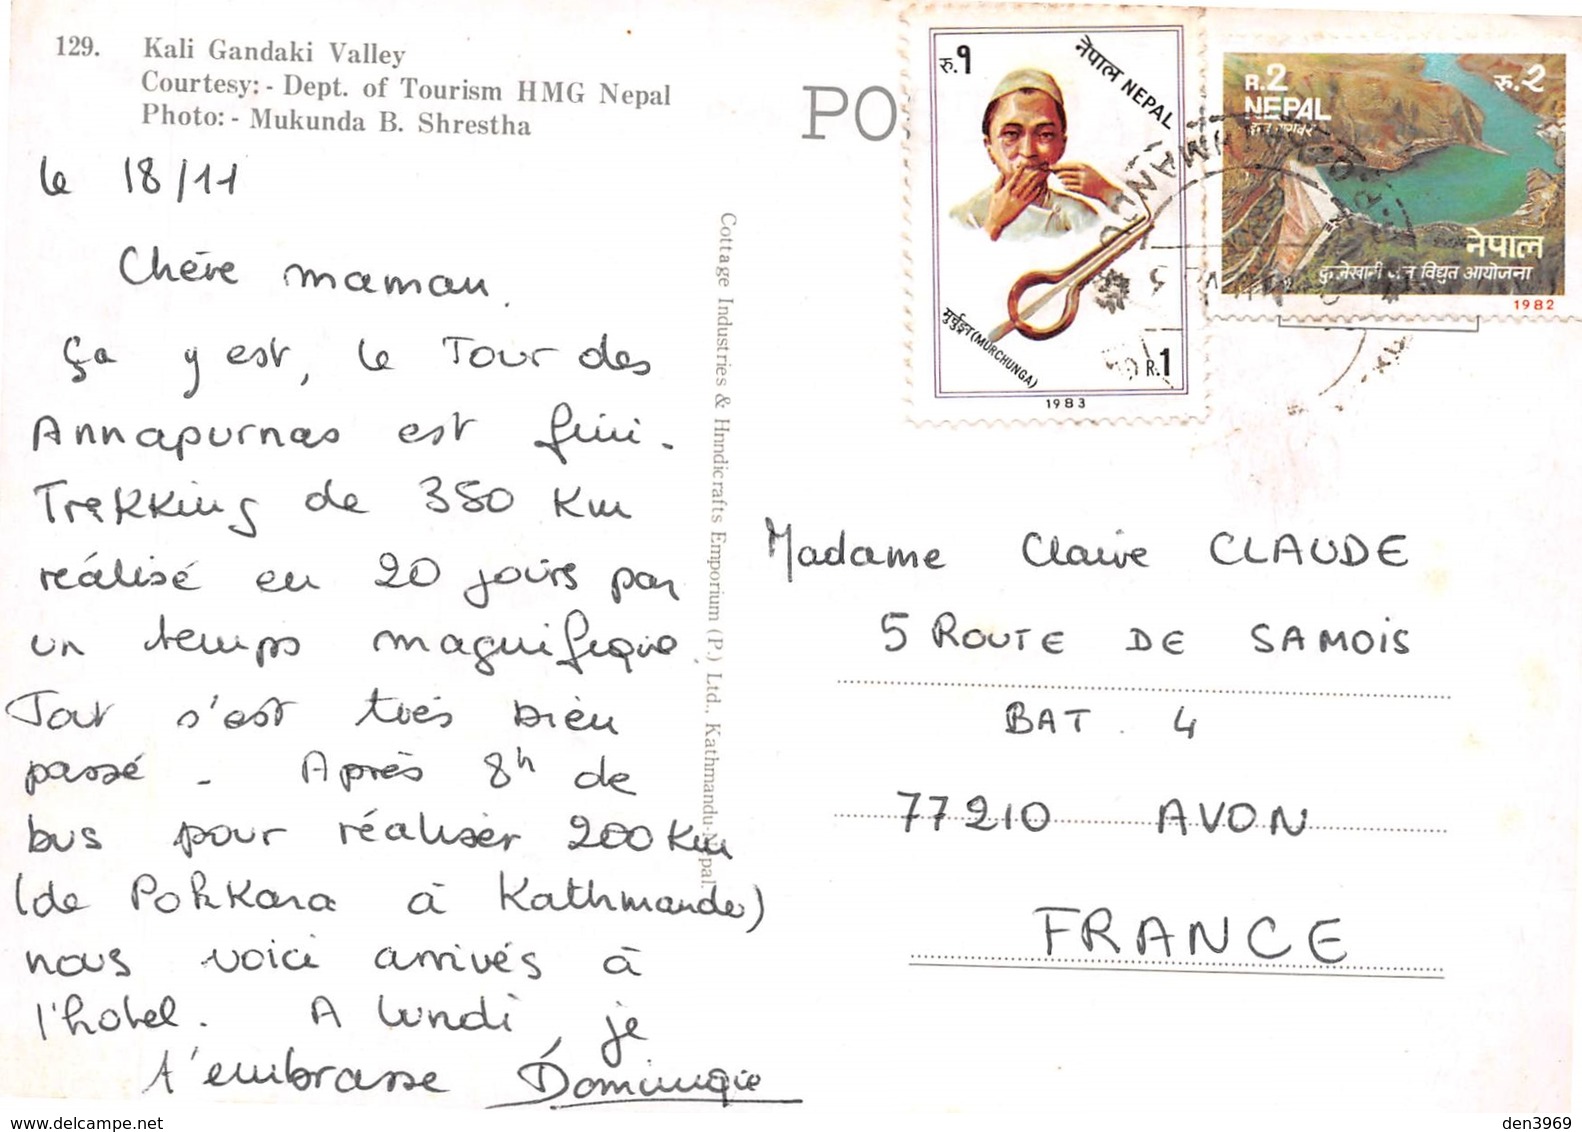 129. Kali Gandaki Valley
Courtesy: - Dept. of Tourism HMG Nepal
Photo: - Mukunda B. Shrestha
le 18/11
Chère maman.
Ça y est, le Tour des
Annapurnas est fini.
Trekking de 350 Km
réalisé en 20 jours par
un temps magnifique.
Tout s'est très bien
passé. Après 8h de
bus pour réaliser 200 Km
(de Pohkara à Kathmandu)
nous voici arrivés à
l'hotel. A lundi, je
t'embrasse Dominique
Cottage Industries & Hnndicrafts Emporium (P.) Ltd., Kathmandu-Nepal.
PO
रु.१
नेपाल NEPAL
मुर्चुङ्गा (MURCHUNGA)
R.1
1983
R.2
NEPAL
रु.२
नेपाल
विद्युत आयोजना
1982
Madame Claire CLAUDE
5 ROUTE DE SAMOIS
BAT. 4
77210 AVON
FRANCE
den3969